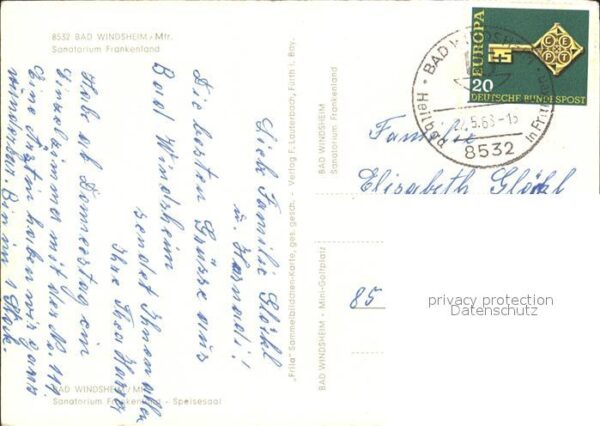 8532 BAD WINDSHEIM/Mfr.
Sanatorium Frankenland
Liebe Familie Glökl
u. Harnadi!
Die besten Grüsse aus
Bad Windsheim
sendet Ihnen allen
Ihre Thea
Hab ab Donnerstag ein
Einzelzimmer mit der No. 117
Eine Ärztin haben wir ganz
wunderbar. Bin im 1 Stock.
BAD WINDSHEIM/Mfr.
Sanatorium Frankenland - Speisesaal
„Frila" Sammelbildchen-Karte, ges. gesch. - Verlag F. Lauterbach, Fürth i. Bay.
BAD WINDSHEIM
Sanatorium Frankenland
BAD WINDSHEIM - Mini-Golfplatz
EUROPA
CEPT
20
DEUTSCHE BUNDESPOST
BAD WINDSHEIM
Heilquellenbad
5.68
8532
Familie
Elisabeth Glökl
85
privacy protection
Datenschutz